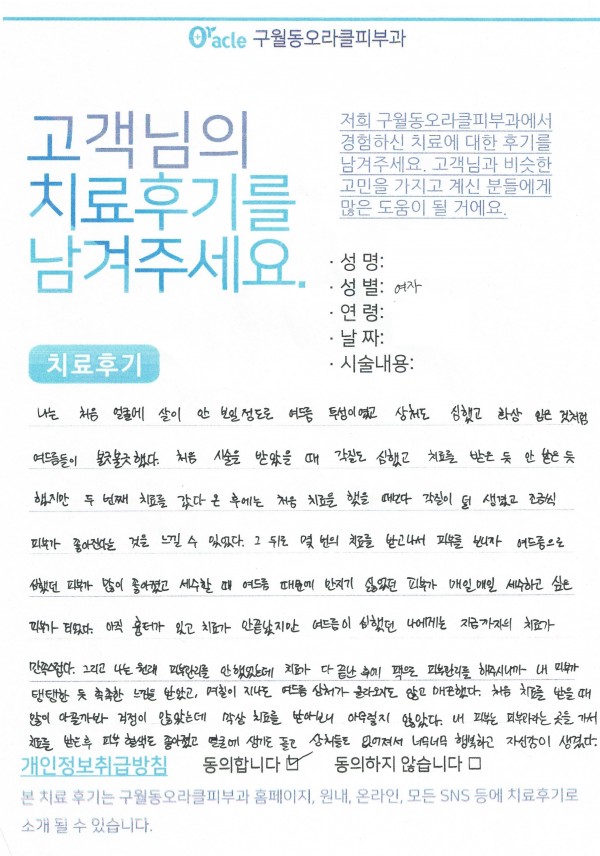 Oracle 구월동오라클피부과
고객님의
치료후기를
남겨주세요.
저희 구월동오라클피부과에서
경험하신 치료에 대한 후기를
남겨주세요. 고객님과 비슷한
고민을 가지고 계신 분들에게
많은 도움이 될 거에요.
· 성 명:
· 성 별: 여자
· 연 령:
· 날 짜:
· 시술내용:
치료후기
나는 처음 얼굴에 살이 안 보일정도로 여드름 투성이였고 상처도 심했고 화상 입은 것처럼
여드름들이 붉긋붉긋했다. 처음 시술을 받았을 때 각질도 심했고 치료를 받은 듯 안 받은 듯
했지만 두 번째 치료를 갔다 온 후에는 처음 치료를 했을 때보다 각질이 덜 생겼고 조금씩
피부가 좋아진다는 것을 느낄 수 있었다. 그 뒤로 몇 번의 치료를 받고나서 피부를 보니까 여드름으로
심했던 피부가 많이 좋아졌고 세수할 때 여드름 때문에 만지기 싫었던 피부가 매일매일 세수하고 싶은
피부가 되었다. 아직 흉터가 있고 치료가 안끝났지만 여드름이 심했던 나에게는 지금까지의 치료가
만족스럽다. 그리고 나는 원래 피부관리를 안했었는데 치료가 다 끝난 후에 팩으로 피부관리를 해주시니까 내 피부가
탱탱한 듯 촉촉한 느낌을 받았고, 며칠이 지나도 여드름 상처가 올라오지도 않고 매끈했다. 처음 치료를 받을 때
많이 아플까봐 걱정이 많았는데 막상 치료를 받아보니 아무렇지 않았다. 내 피부는 피부라는 곳을 가서
치료를 받은후 피부 혈색도 좋아졌고 얼굴에 생기도 돌고 상처들도 없어져서 너무너무 행복하고 자신감이 생겼다.
개인정보취급방침 동의합니다 ☑ 동의하지 않습니다 □
본 치료 후기는 구월동오라클피부과 홈페이지, 원내, 온라인, 모든 SNS 등에 치료후기로
소개 될 수 있습니다.